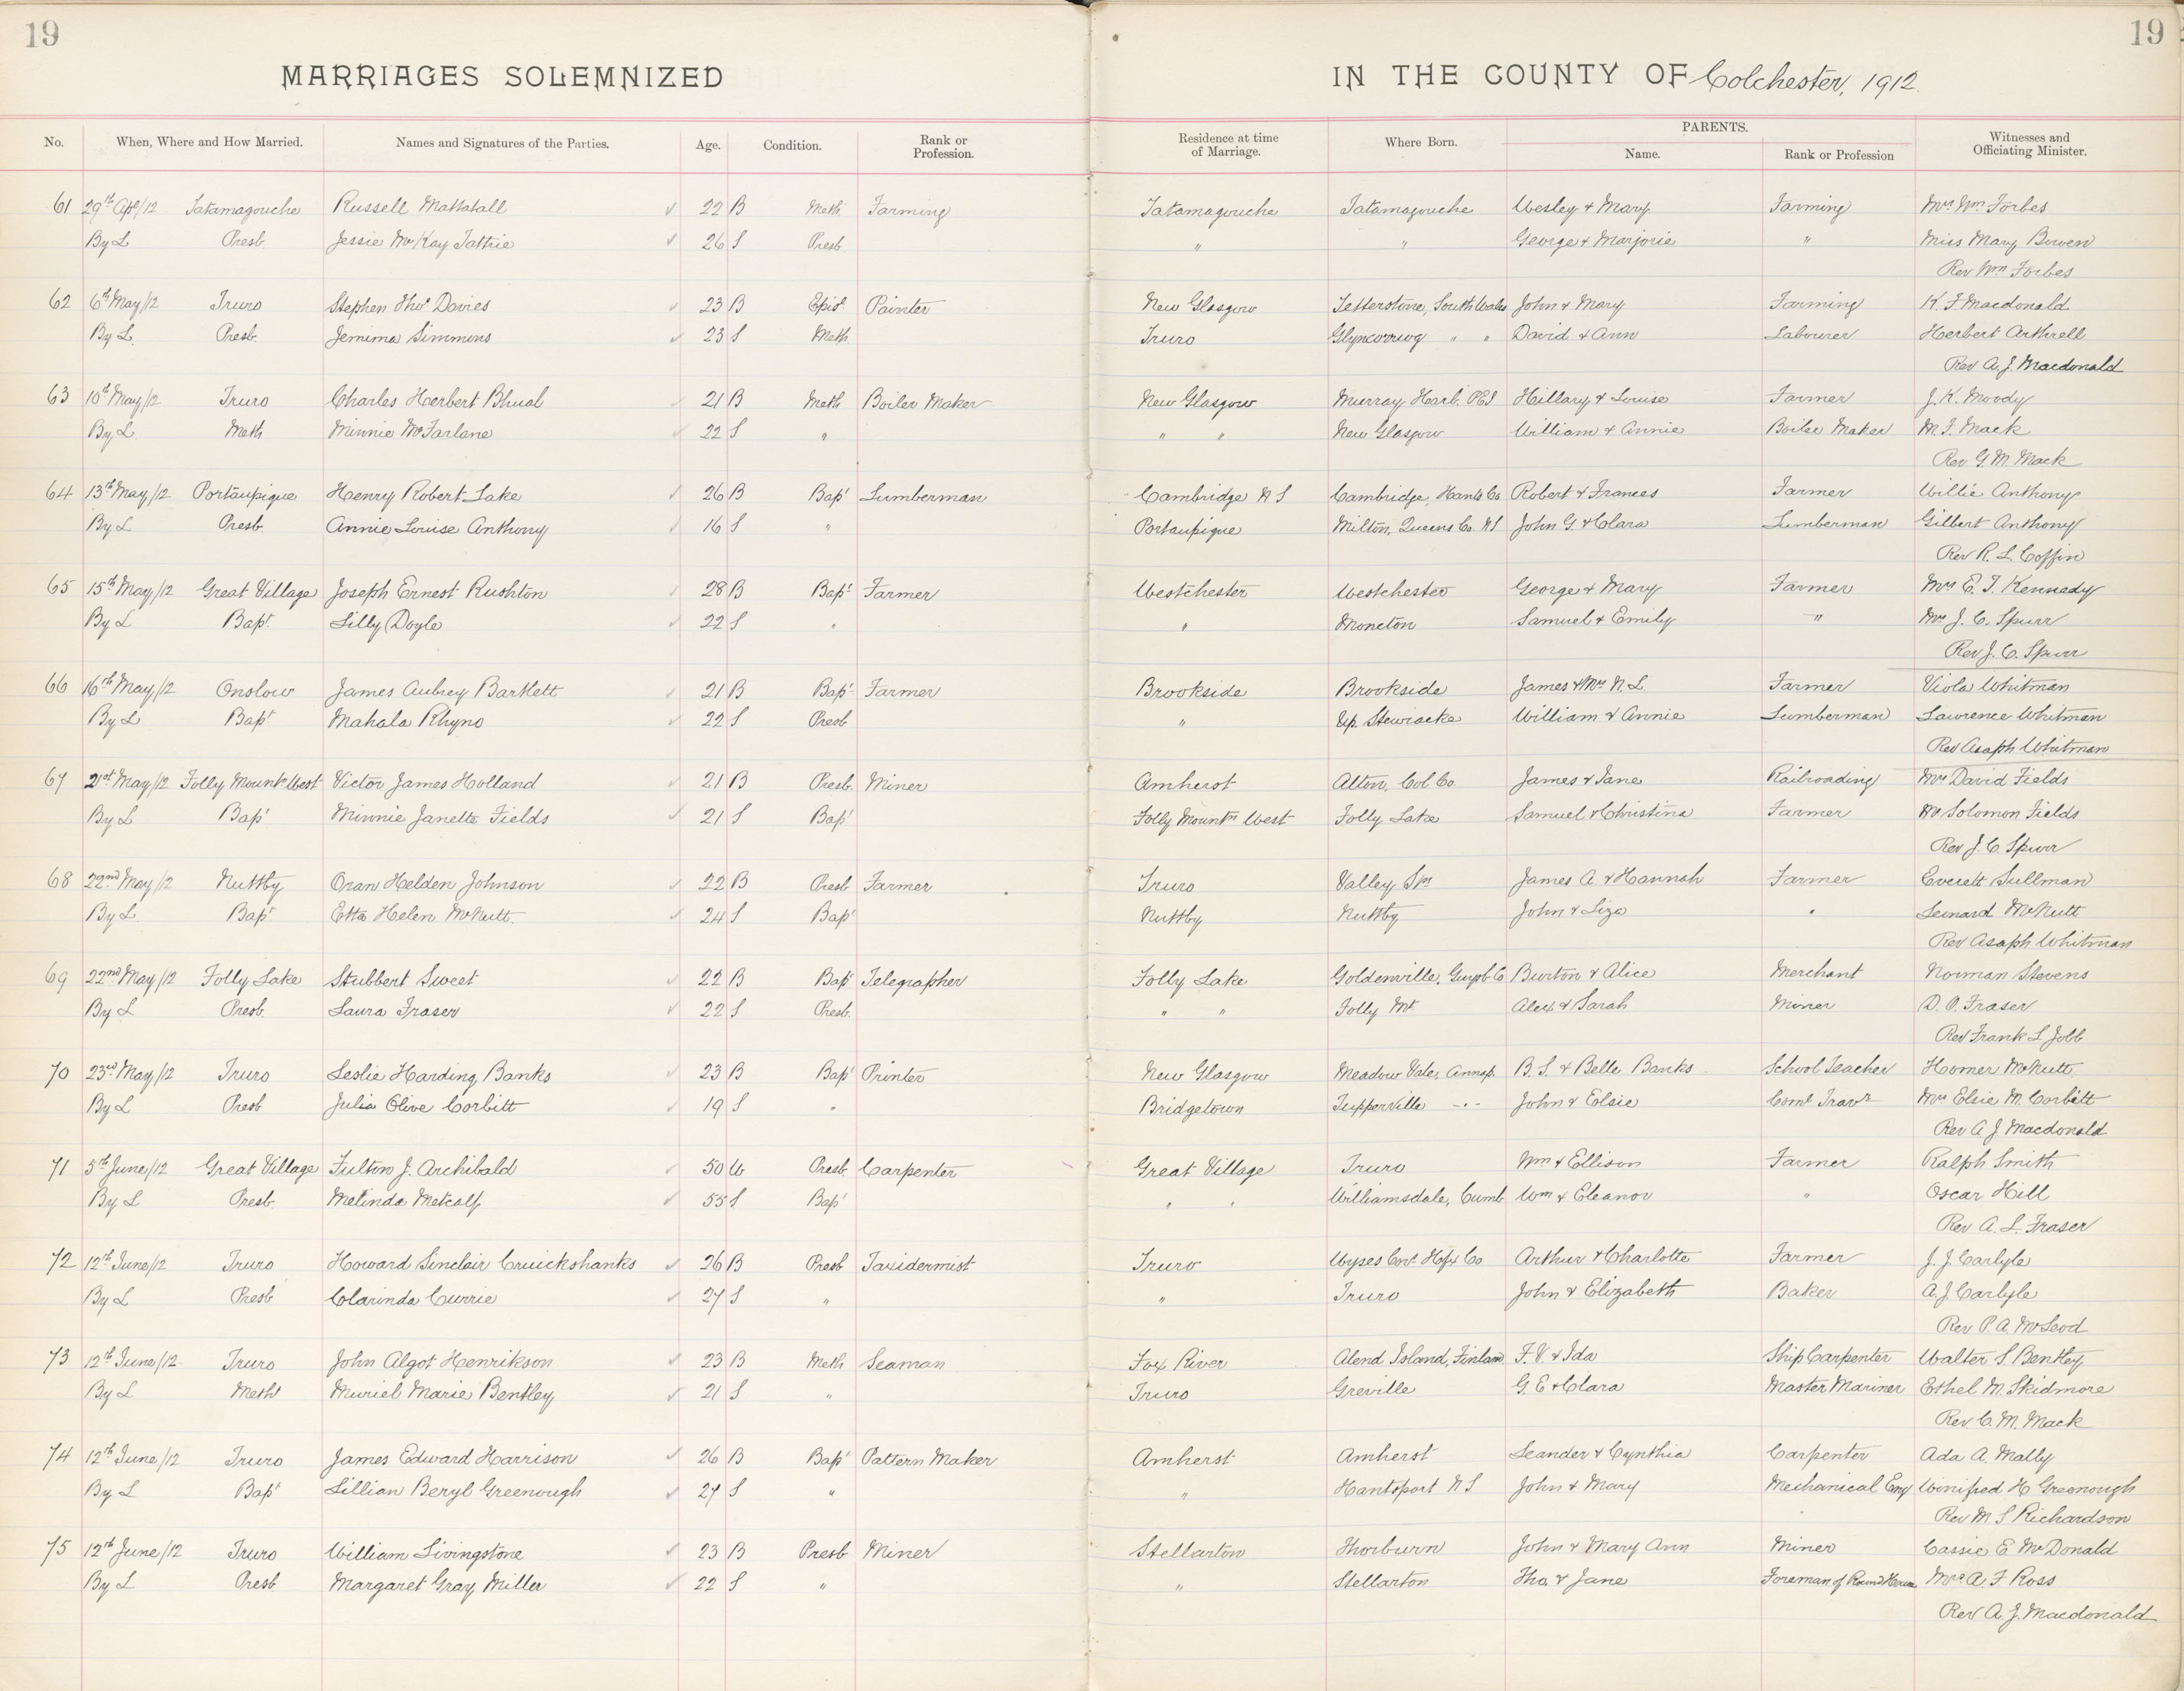 19 19
MARRIAGES SOLEMNIZED IN THE COUNTY OF Colchester, 1912.
No. When, Where and How Married. Names and Signatures of the Parties. Age. Condition. Rank or Profession. Residence at time of Marriage. Where Born. PARENTS. Name. Rank or Profession Witnesses and Officiating Minister.
61 29th Apl/12 Tatamagouche Russell Mattatall 22 B Meth Farming Tatamagouche Tatamagouche Wesley & Mary Farming Mrs Wm Forbes
By L Presb. Jessie McKay Tattrie 26 S Presb " " George & Marjorie " Miss Mary Bowen
Rev Wm Forbes
62 6th May/12 Truro Stephen Thos Davies 23 B Epis Painter New Glasgow Letterstone, South Wales John & Mary Farming K. F. Macdonald
By L Presb. Jemima Simmons 23 S Meth Truro Glyncorrwg " " David & Ann Labourer Herbert Arthrell
Rev A. J. Macdonald
63 10th May/12 Truro Charles Herbert Bhual 21 B Meth Boiler Maker New Glasgow Murray Harb. PEI Hillary & Louise Farmer J. K. Moody
By L Meth Minnie McFarlane 22 S " " " New Glasgow William & Annie Boiler Maker M. F. Mack
Rev G. M. Mack
64 13th May/12 Portaupique Henry Robert Lake 26 B Bapt Lumberman Cambridge N S Cambridge, Hants Co. Robert & Frances Farmer Willie Anthony
By L Presb. Annie Louise Anthony 16 S " Portaupique Milton, Queens Co. N S John G. & Clara Lumberman Gilbert Anthony
Rev R. L. Coffin
65 15th May/12 Great Village Joseph Ernest Rushton 28 B Bapt Farmer Westchester Westchester George & Mary Farmer Mrs E. T. Kennedy
By L Bapt. Lilly Doyle 22 S " " Moncton Samuel & Emily " Mrs J. C. Spurr
Rev J. C. Spurr
66 16th May/12 Onslow James Aubrey Bartlett 21 B Bapt Farmer Brookside Brookside James & Mrs N. L. Farmer Viola Whitman
By L Bapt Mahala Rhyno 22 S Presb " Up. Stewiacke William & Annie Lumberman Lawrence Whitman
Rev Asaph Whitman
67 21st May/12 Folly Mountn West Victor James Holland 21 B Presb. Miner Amherst Alton, Col Co. James & Jane Railroading Mrs David Fields
By L Bapt Minnie Janette Fields 21 S Bapt Folly Mountn West Folly Lake Samuel & Christina Farmer Mr Solomon Fields
Rev J. C. Spurr
68 22nd May/12 Nuttby Oran Helden Johnson 22 B Presb Farmer Truro Valley Stn James A & Hannah Farmer Everett Sullman
By L Bapt Etta Helen McNutt 24 S Bapt Nuttby Nuttby John & Liza " Leinard McNutt
Rev Asaph Whitman
69 22nd May/12 Folly Lake Stubbert Sweet 22 B Bapt Telegrapher Folly Lake Goldenville, Guysb Co Burton & Alice Merchant Norman Stevens
By L Presb. Laura Fraser 22 S Presb. " " Folly Mt. Alex & Sarah Miner D. O. Fraser
Rev Frank L Jobb
70 23rd May/12 Truro Leslie Harding Banks 23 B Bapt Printer New Glasgow Meadow Vale, Annap. B. S. & Belle Banks School Teacher Homer McNutt
By L Presb Julia Olive Corbitt 19 S " Bridgetown Tupperville -"- John & Eolsie Coml Travr Mrs Elsie M. Corbitt
Rev A J Macdonald
71 5th June/12 Great Village Fulton J. Archibald 50 W Presb. Carpenter Great Village Truro Wm & Ellison Farmer Ralph Smith
By L Presb. Melinda Metcalf 55 S Bapt " " Williamsdale, Cumb Wm & Eleanor " Oscar Hill
Rev A. L. Fraser
72 12th June/12 Truro Howard Sinclair Cruickshanks 26 B Presb Taxidermist Truro Wyses Cor. Hfx Co Arthur & Charlotte Farmer J. J. Carlyle
By L Presb Clarinda Currie 27 S " " Truro John & Elizabeth Baker A. J. Carlyle
Rev P. A. McLeod
73 12th June/12 Truro John Algot Henrikson 23 B Meth Seaman Fox River Alend Island, Finland F. V. & Ida Ship Carpenter Walter S. Bentley
By L Metht Muriel Marie Bentley 21 S " Truro Greville G. E & Clara Master Mariner Ethel M. Skidmore
Rev C. M. Mack
74 12th June/12 Truro James Edward Harrison 26 B Bapt Pattern Maker Amherst Amherst Leander & Cynthia Carpenter Ada A. Mally
By L Bapt Lillian Beryl Greenough 27 S " " Hantsport N S John & Mary Mechanical Eng Winifred H Greenough
Rev M. S Richardson
75 12th June/12 Truro William Livingstone 23 B Presb Miner Stellarton Thorburn John & Mary Ann Miner Cassie E McDonald
By L Presb Margaret Gray Miller 22 S " " Stellarton Tho. & Jane Foreman of Round House Mrs A. F Ross
Rev A. J. Macdonald